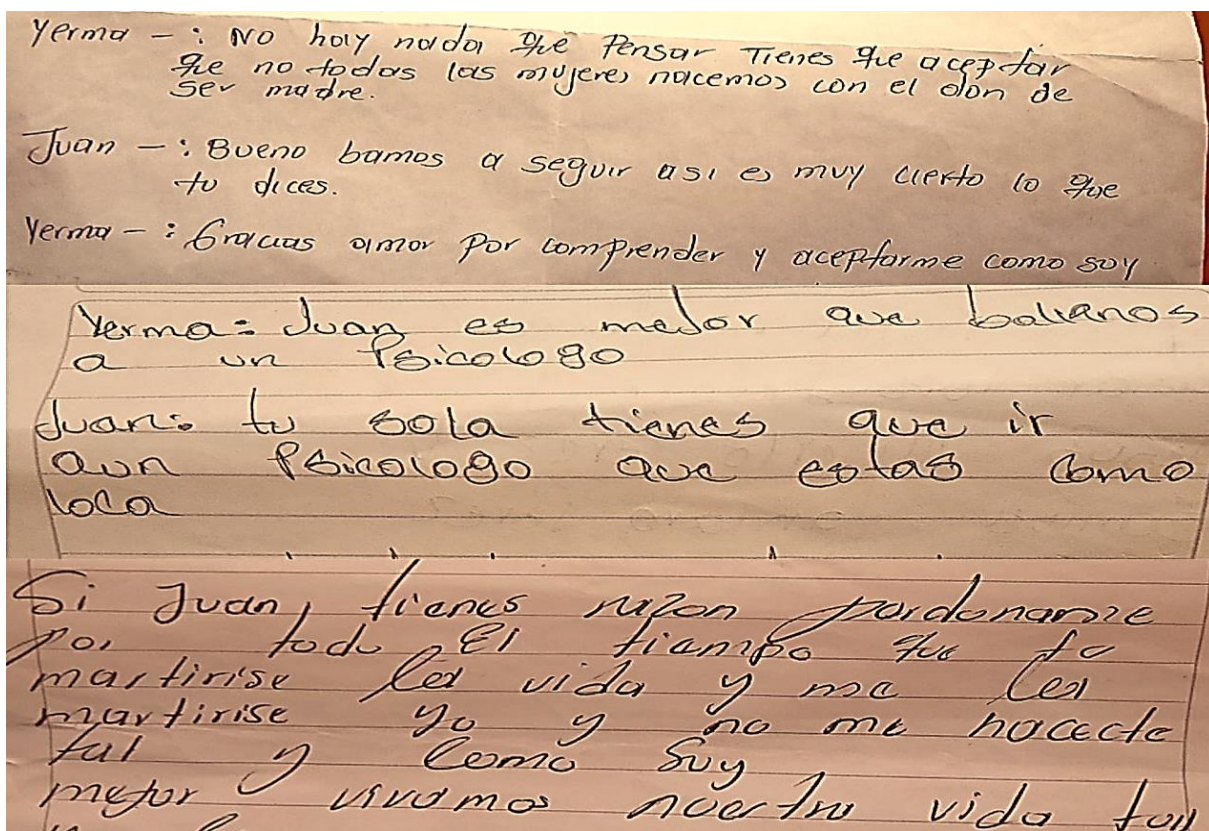 Yerma - : No hay nada que Pensar Tienes que aceptar
que no todas las mujeres nacemos con el don de
ser madre.
Juan - : Bueno bamos a seguir asi es muy cierto lo que
tu dices.
Yerma - : Gracias amor por comprender y aceptarme como soy
Yerma: Juan es mejor que
a un Psicologo
Juan: tu sola tienes que ir
aun Psicologo que estas como
loca
Si Juan, tienes razon pardoname
por todo El tiempo que te
martirise la vida y me la
martirise yo y no me
tal y como Soy
mejor vivamos nuestra vida tal